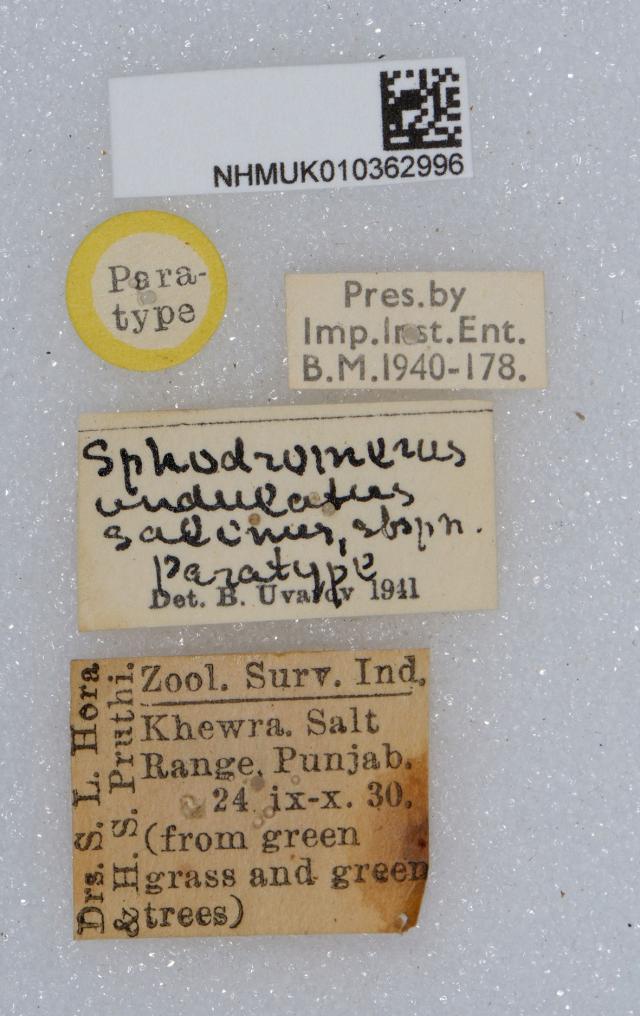 NHMUK010362996
Para-
type
Pres.by
Imp.Inst.Ent.
B.M.1940-178.
Sphodromerus
undulatus
salinus, sbspn.
Paratype
Det. B. Uvarov 1941
Drs. S. L. Hora
& H. S. Pruthi.
Zool. Surv. Ind.
Khewra. Salt
Range. Punjab.
24 ix-x. 30.
(from green
grass and green
trees)